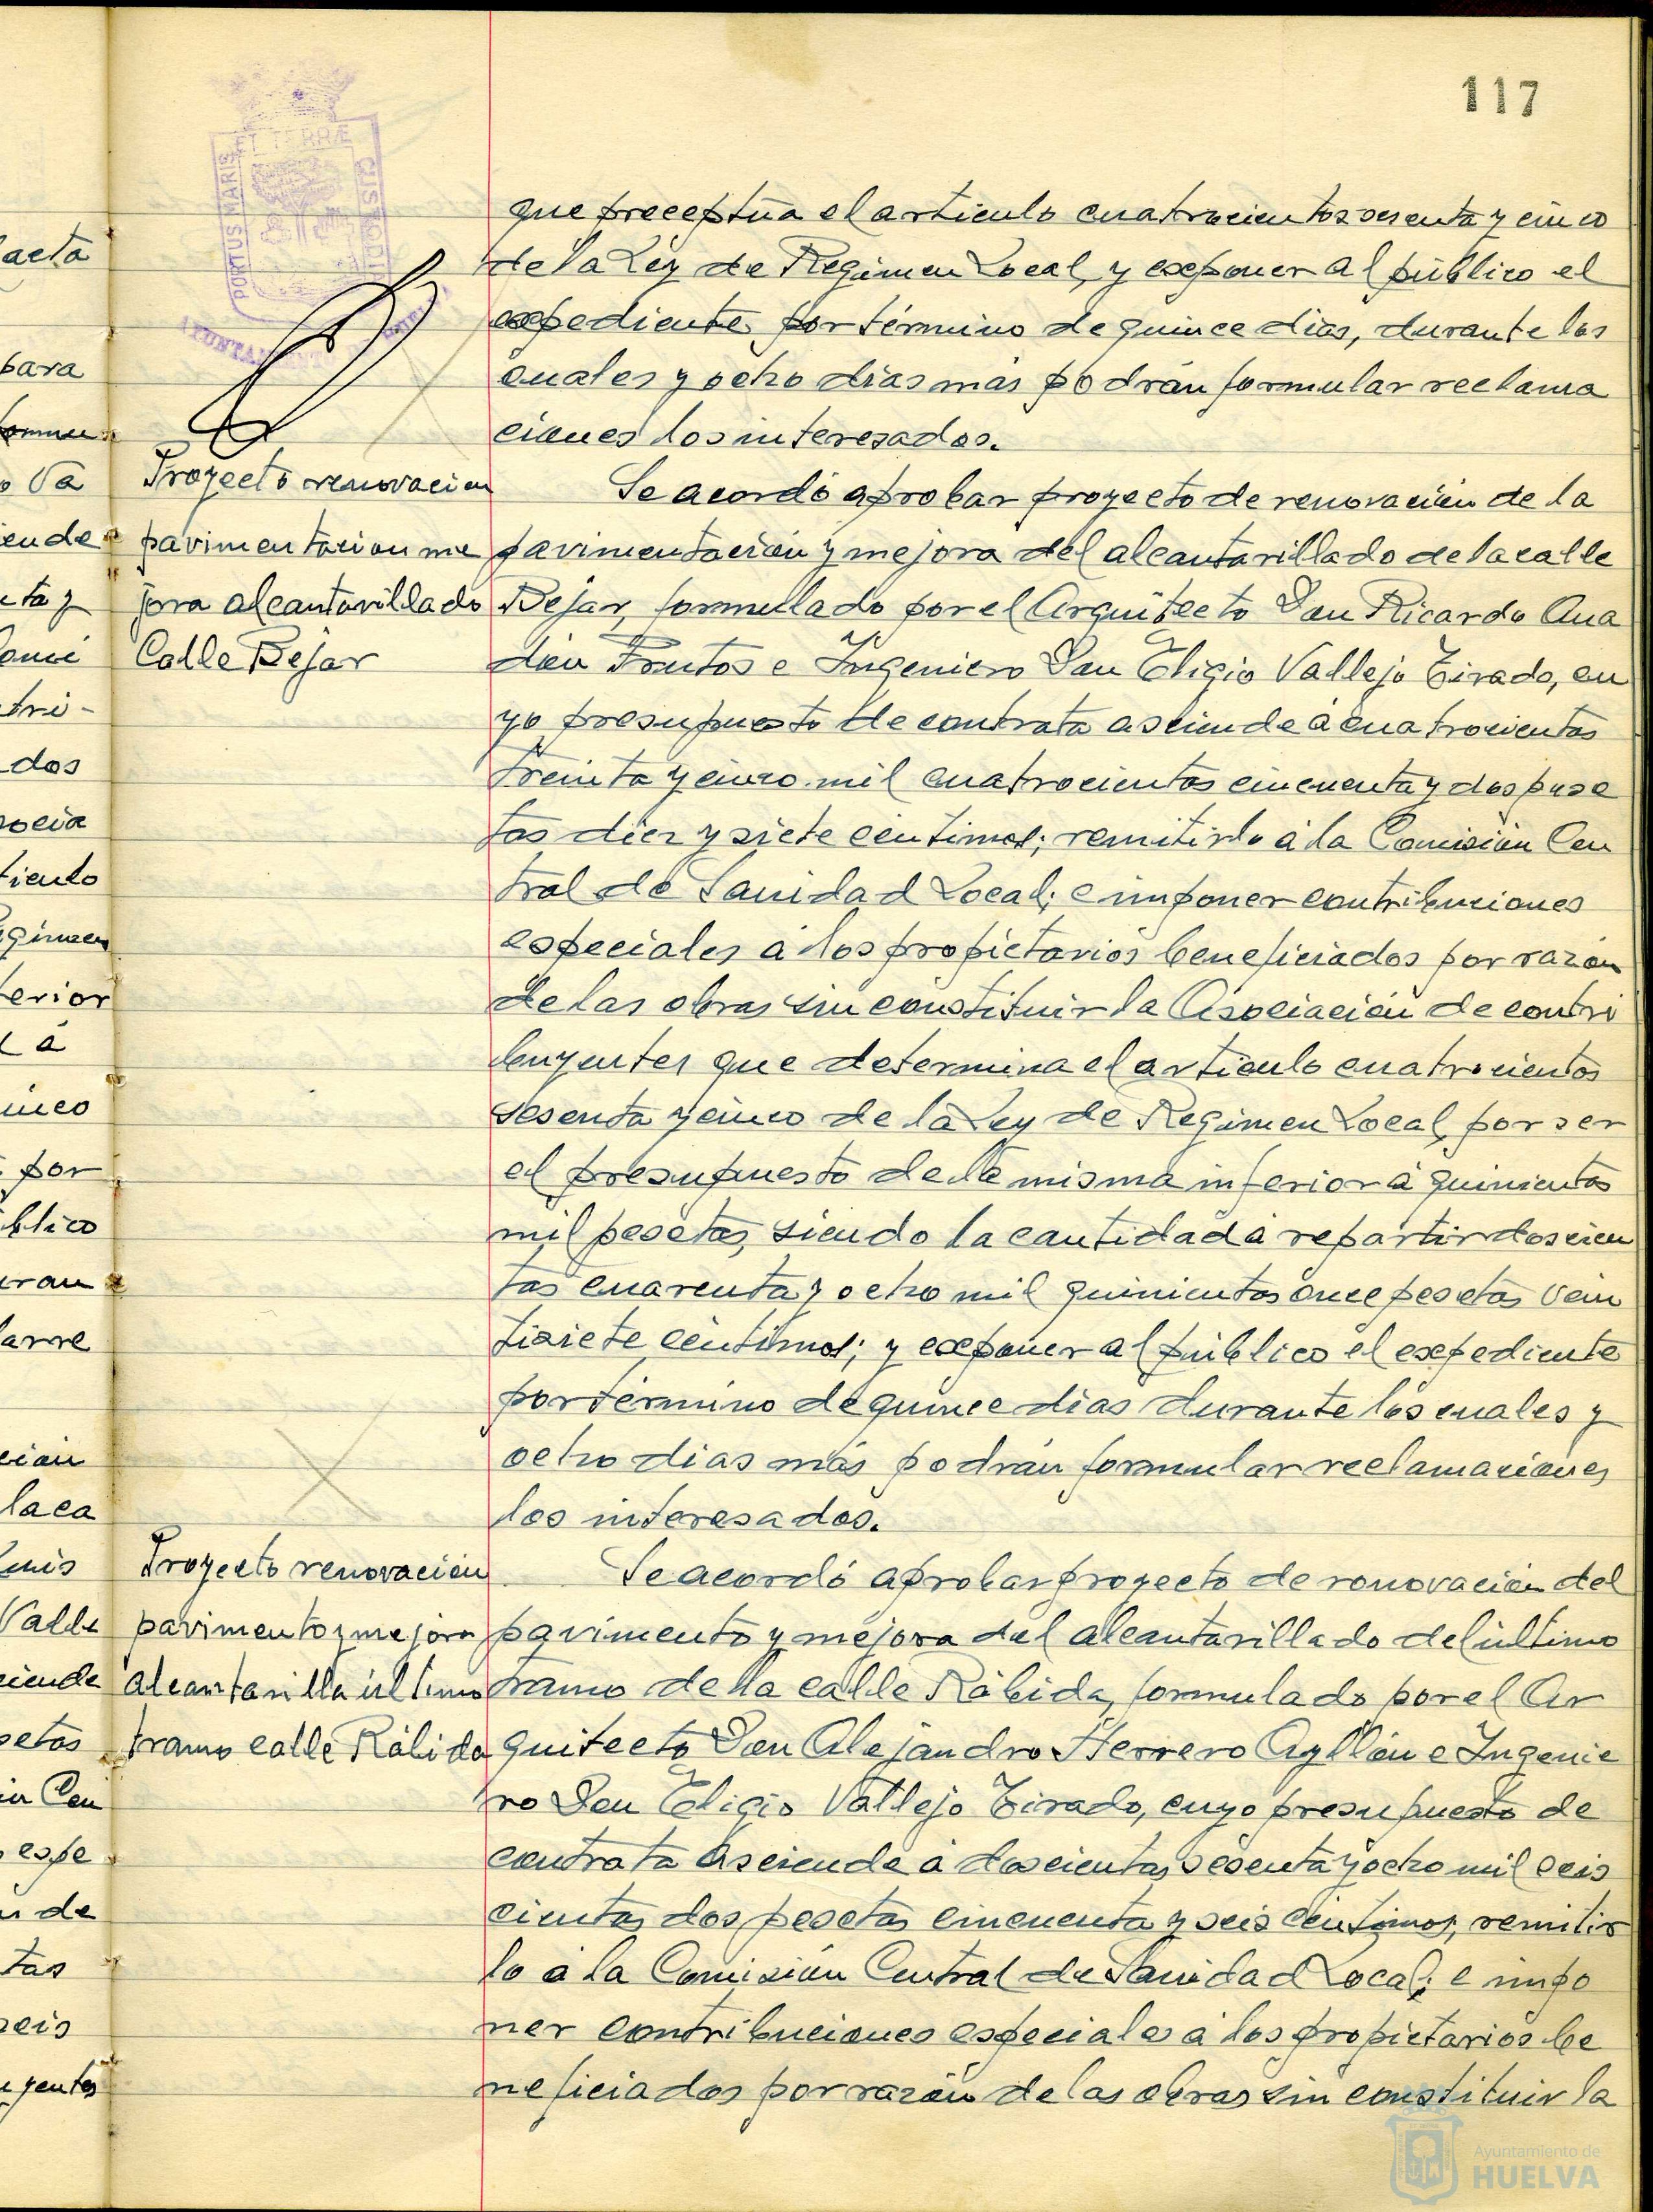 117
PORTUS MARIS
ET TERRÆ
CUSTODIA
que preceptúa el articulo cuatrocientos sesenta y cinco
de la Ley de Regimen Local, y exponer al público el
expediente por término de quince dias, durante los
cuales y ocho días más podrán formular reclama
ciones los interesados.
Proyecto renovacion
pavimentacion me
jora alcantarillado
Calle Bejar
Se acordó aprobar proyecto de renovación de la
pavimentación y mejora del alcantarillado de la calle
Bejar, formulado por el Arquitecto Don Ricardo Ana
dón Frutos e Ingeniero Don Eligio Vallejo Tirado, cu
yo presupuesto de contrata asciende á cuatrocientas
treinta y cinco mil cuatrocientas cincuenta y dos pese
tas diez y siete centimos; remitirlo á la Comisión Cen
tral de Sanidad Local; e imponer contribuciones
especiales á los propietarios beneficiados por razón
de las obras sin constituir la Asociación de contri
buyentes que determina el articulo cuatrocientos
sesenta y cinco de la Ley de Regimen Local, por ser
el presupuesto de la misma inferior á quinientas
mil pesetas, siendo la cantidad á repartir doscien
tas cuarenta y ocho mil quinientas once pesetas vein
tisiete céntimos; y exponer al público el expediente
por término de quince dias durante los cuales y
ocho dias más podrán formular reclamaciones
los interesados.
Proyecto renovación
pavimento y mejora
alcantarilla último
tramo calle Rábida
Se acordó aprobar proyecto de renovación del
pavimento y mejora del alcantarillado del último
tramo de la calle Rábida, formulado por el Ar
quitecto Don Alejandro Herrero Ayllón e Ingenie
ro Don Eligio Vallejo Tirado, cuyo presupuesto de
contrata asciende á doscientas sesenta y ocho mil seis
cientas dos pesetas cincuenta y seis céntimos; remitir
lo á la Comisión Central de Sanidad Local; e impo
ner contribuciones especiales á los propietarios be
neficiados por razón de las obras sin constituir la
Ayuntamiento de
HUELVA